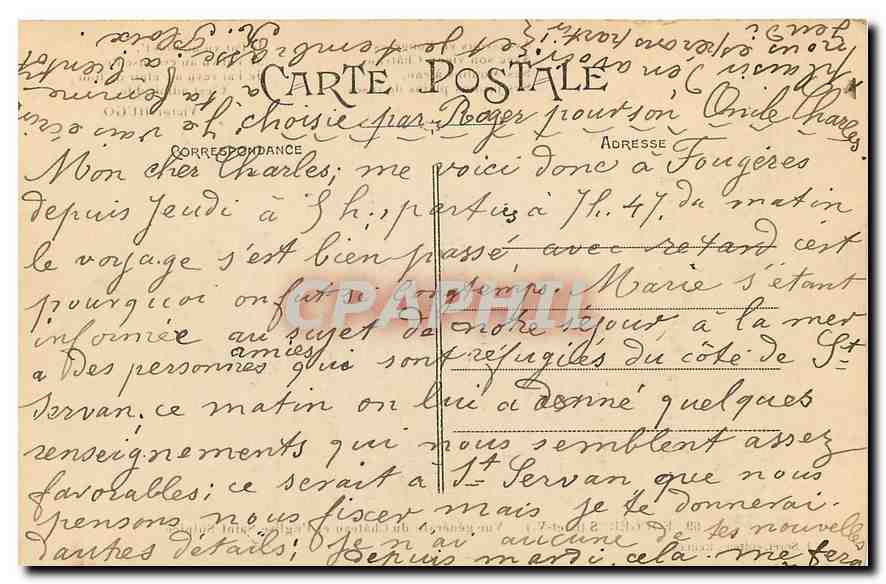 CARTE POSTALE
choisie par Roger pour son Oncle Charles
CORRESPONDANCE
ADRESSE
Mon cher Charles, me voici donc à Fougères
depuis Jeudi à 5 h., partis à 7h.47. du matin
le voyage s'est bien passé avec retard c'est
pourquoi on fut si longtemps. Marie s'étant
informée au sujet de notre séjour à la mer
a des personnes amies qui sont réfugiés du côté de St
Servan. ce matin on lui a donné quelques
renseignements qui nous semblent assez
favorables; ce serait à St Servan que nous
pensons nous fixer mais je te donnerai
d'autres détails; je n'ai aucune de tes nouvelles
depuis mardi, cela me fera
plaisir d'en avoir
nous espérons partir
Jeudi
à bientôt
CPAPHIL